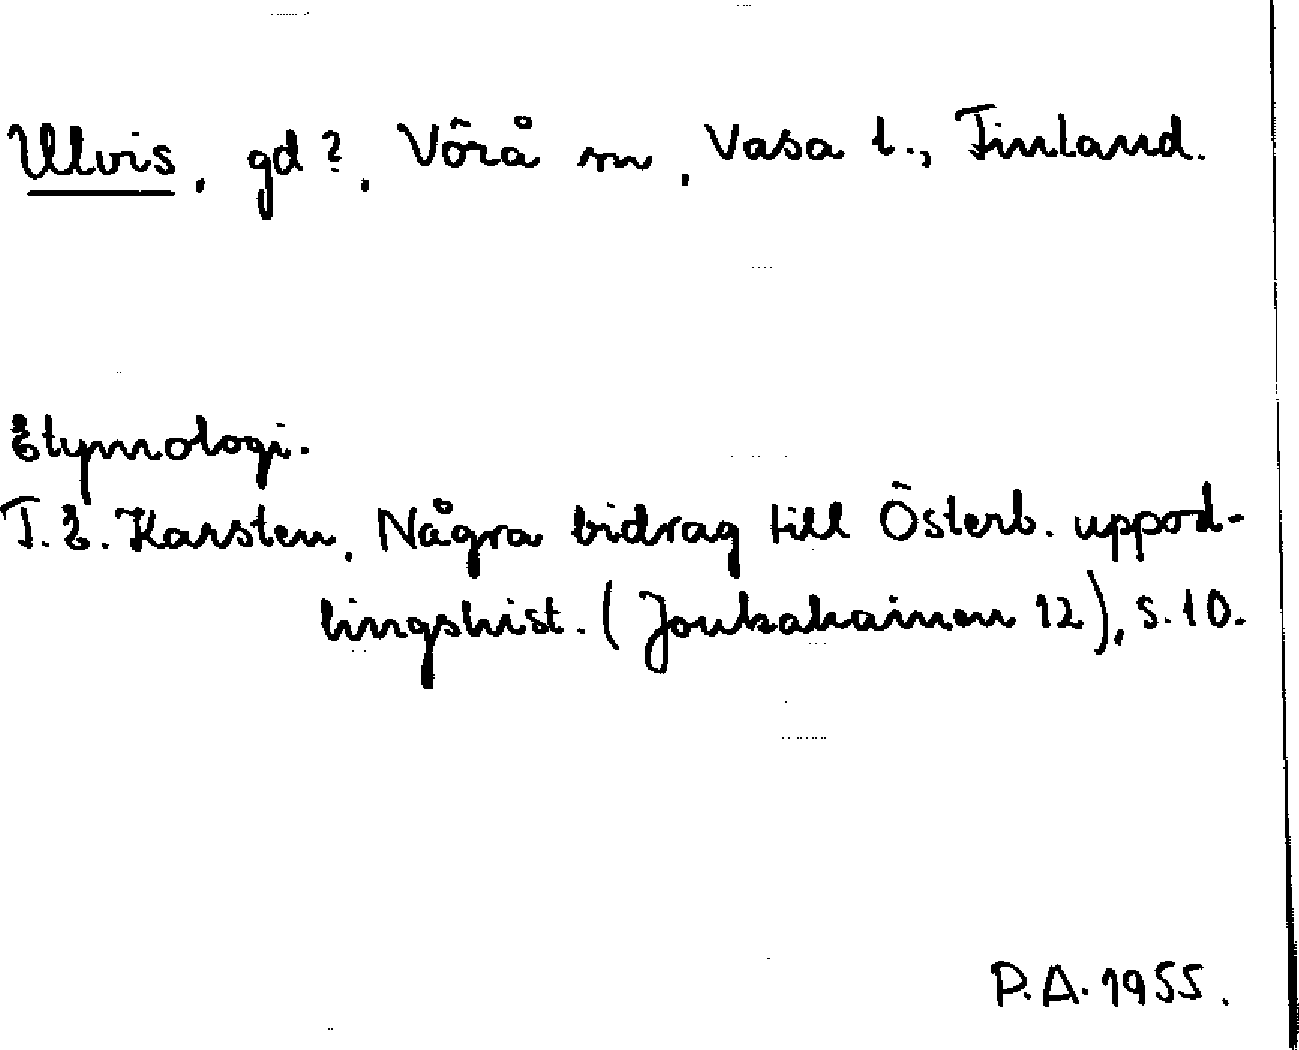 Ulvis, gd?, Vörå sn, Vasa l., Finland.
Etymologi.
T. E. Karsten, Några bidrag till Österb. uppod-
lingshist. (Joukahainen 12), s. 10.
P.A. 1955.